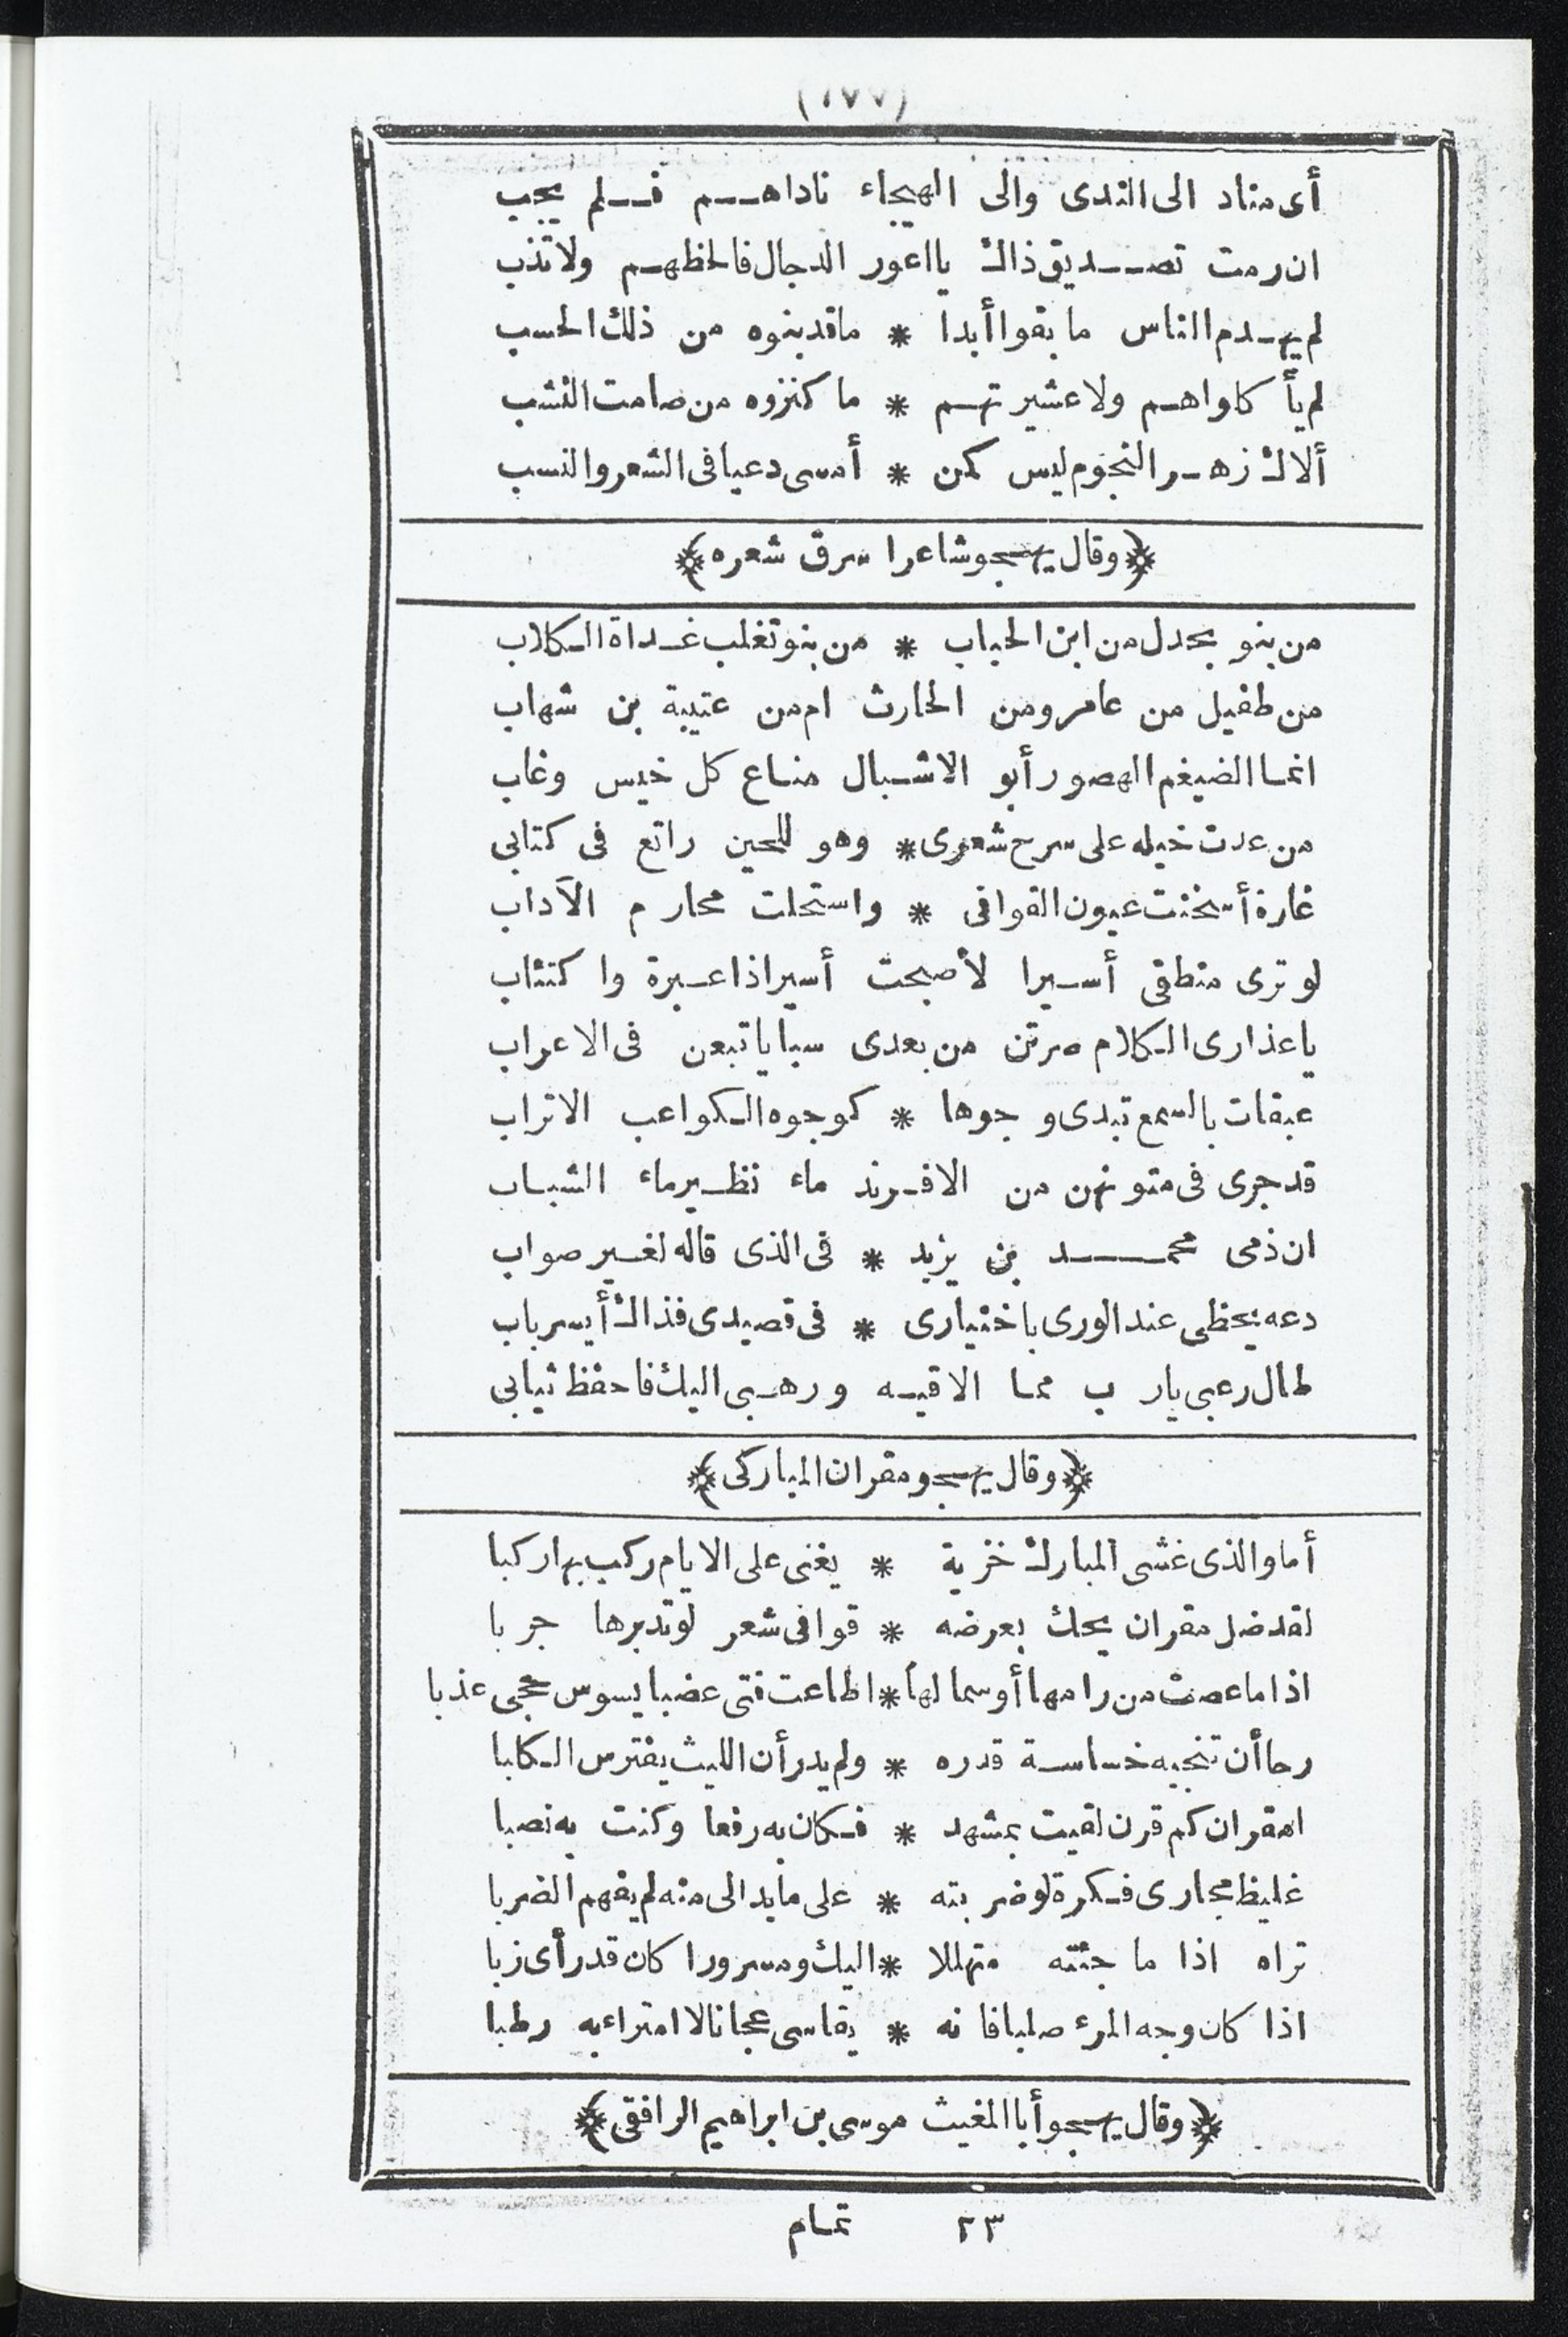 (١٧٧)
أى مناد الى الندى والى الهيجاء ناداهم فلم يجب
ان رمت تصديق ذاك يا اعور الدجال فالحظهم ولا تذب
لم يهدم الناس ما بقوا أبدا * ما قد بنوه من ذلك الحسب
لم يأكاواهم ولا عشيرتهم * ما كنزوه من صامت النشب
ألاك زهر النجوم ليس كمن * أمسى دعيا فى الشعر والنسب
﴿وقال يهجو شاعرا سرق شعره﴾
من بنو بجدل من ابن الحباب * من بنو تغلب غداة الكلاب
من طفيل من عامر ومن الحارث ام من عتيبة بن شهاب
انما الضيغم الهصور أبو الاشبال مناع كل خيس وغاب
من عدت خيله على سرح شعرى * وهو للحين راتع فى كتابى
غارة أسخنت عيون القوافى * واستحلت محارم الآداب
لو ترى منطقى أسيرا لأصبحت أسيرا ذا عبرة واكتئاب
يا عذارى الكلام صرتن من بعدى سبايا تبعن فى الاعراب
عبقات بالسمع تبدى وجوها * كوجوه الكواعب الاتراب
قد جرى فى متونهن من الافرند ماء نظير ماء الشباب
ان ذمى محمد بن يزيد * فى الذى قاله لغير صواب
دعه يحظى عند الورى باختيارى * فى قصيدى فذاك أيسر باب
طال رعبى يا رب مما الاقيه ورهبى اليك فاحفظ ثيابى
﴿وقال يهجو مقران المباركى﴾
أما والذى غشى المبارك خزية * يغنى على الايام ركب بها ركبا
لقد ضل مقران يحك بعرضه * قوافى شعر لو تدبرها جربا
اذا ما عصت من رامها أو سما لها * اطاعت فتى عضبا يسوس حجى عذبا
رجا أن تنجيه خساسة قدره * ولم يدر أن الليث يفترس الكلبا
امقران كم قرن لقيت بمشهد * فكان به رفعا وكنت به نصبا
غليظ مجارى فكرة لو ضربته * على ما بدا لى منه لم يفهم الضربا
تراه اذا ما جئته متهللا * اليك ومسرورا كان قد رأى زبا
اذا كان وجه المرء صلبا فانه * يقاسى عجانا لا امتراء به رطبا
﴿وقال يهجو أبا المغيث موسى بن ابراهيم الرافقى﴾
٢٣ تمام